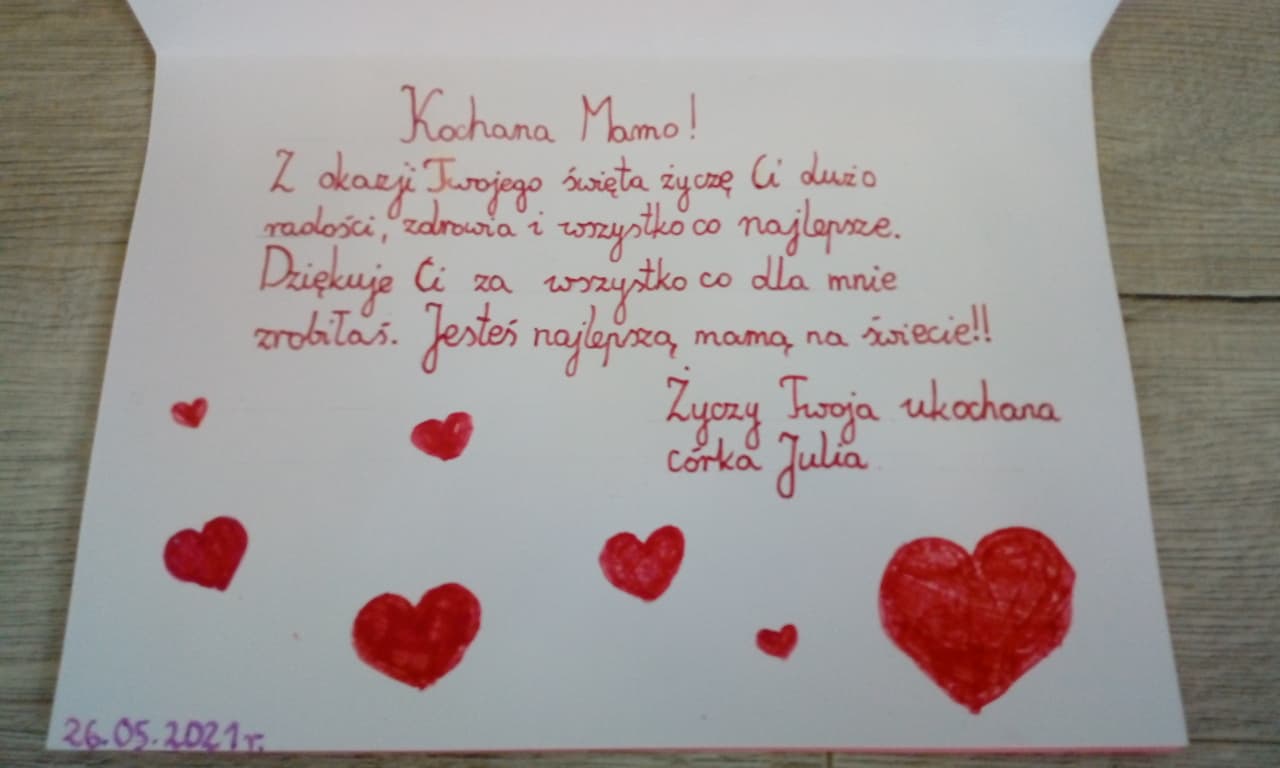 Kochana Mamo!
Z okazji Twojego święta życzę Ci dużo
radości, zdrowia i wszystko co najlepsze.
Dziękuje Ci za wszystko co dla mnie
zrobiłaś. Jesteś najlepszą mamą na świecie!!
Życzy Twoja ukochana
córka Julia
26.05.2021r.